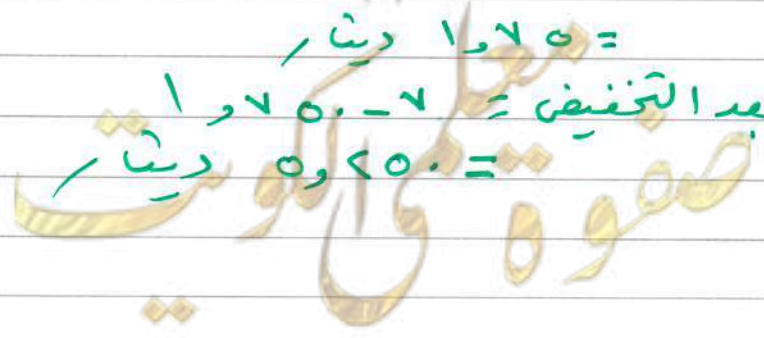 = ١,٧٥ دينار
بعد التخفيض = ٧ - ١,٧٥٠
= ٥,٢٥٠ دينار
صفوة معلمى الكويت